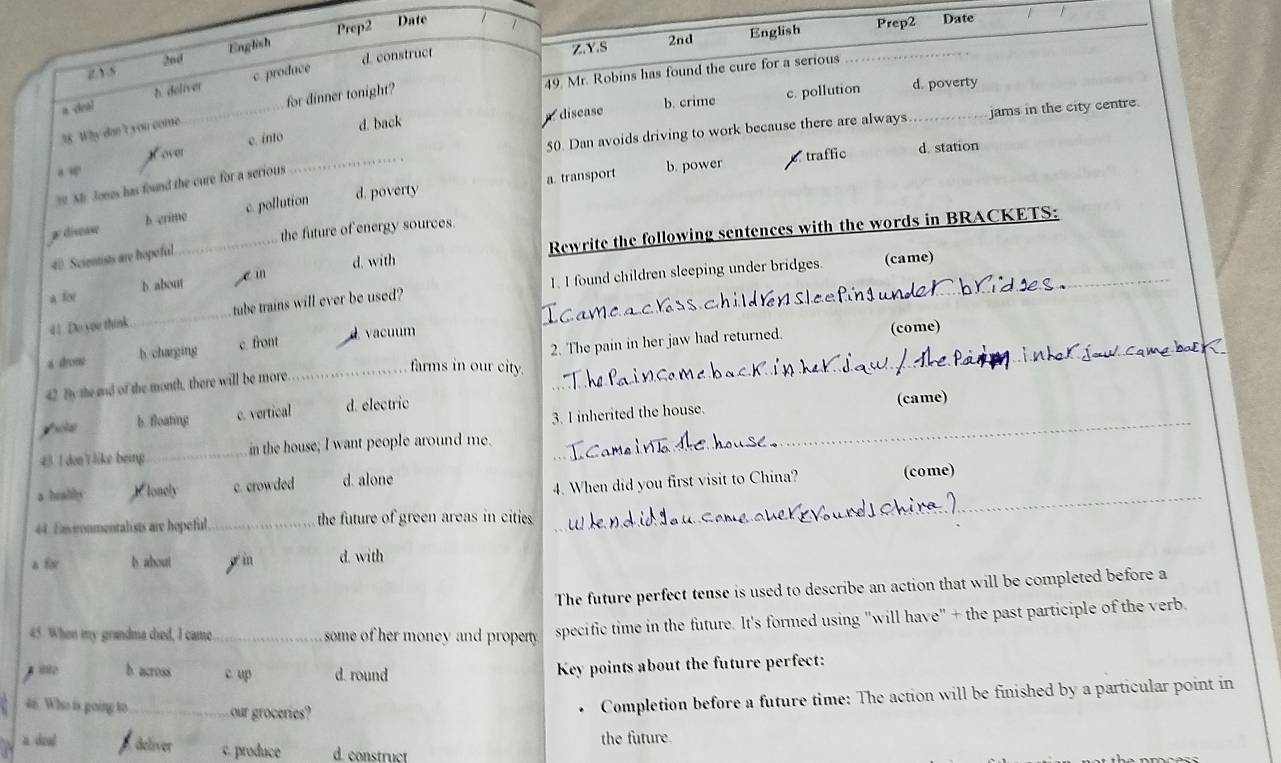 Z.Y.S 2nd English Prep2 Date / /
a. deal b. deliver c. produce d. construct
38. Why don't you come ............ for dinner tonight?
a. up b. over c. into d. back
39. Mr. Jones has found the cure for a serious ............
a. disease b. crime c. pollution d. poverty
40. Scientists are hopeful ............ the future of energy sources.
a. for b. about c. in d. with
41. Do you think ............ tube trains will ever be used?
a. drone b. charging c. front d. vacuum
42. By the end of the month, there will be more ............ farms in our city.
a. solar b. floating c. vertical d. electric
43. I don't like being ............ in the house; I want people around me.
a. healthy b. lonely c. crowded d. alone
44. Environmentalists are hopeful ............ the future of green areas in cities.
a. for b. about c. in d. with
45. When my grandma died, I came ............ some of her money and property
a. into b. across c. up d. round
46. Who is going to ............ our groceries?
a. deal b. deliver c. produce d. construct
Z.Y.S 2nd English Prep2 Date / /
49. Mr. Robins has found the cure for a serious ............
a. disease b. crime c. pollution d. poverty
50. Dan avoids driving to work because there are always ............ jams in the city centre.
a. transport b. power c. traffic d. station
Rewrite the following sentences with the words in BRACKETS:
1. I found children sleeping under bridges. (came)
I came across children sleeping under bridges.
2. The pain in her jaw had returned. (come)
The Pain come back in her jaw / the Pain in her jaw came back
3. I inherited the house. (came)
I came into the house.
4. When did you first visit to China? (come)
When did you come
The future perfect tense is used to describe an action that will be completed before a
specific time in the future. It's formed using "will have" + the past participle of the verb.
Key points about the future perfect:
• Completion before a future time: The action will be finished by a particular point in
the future.